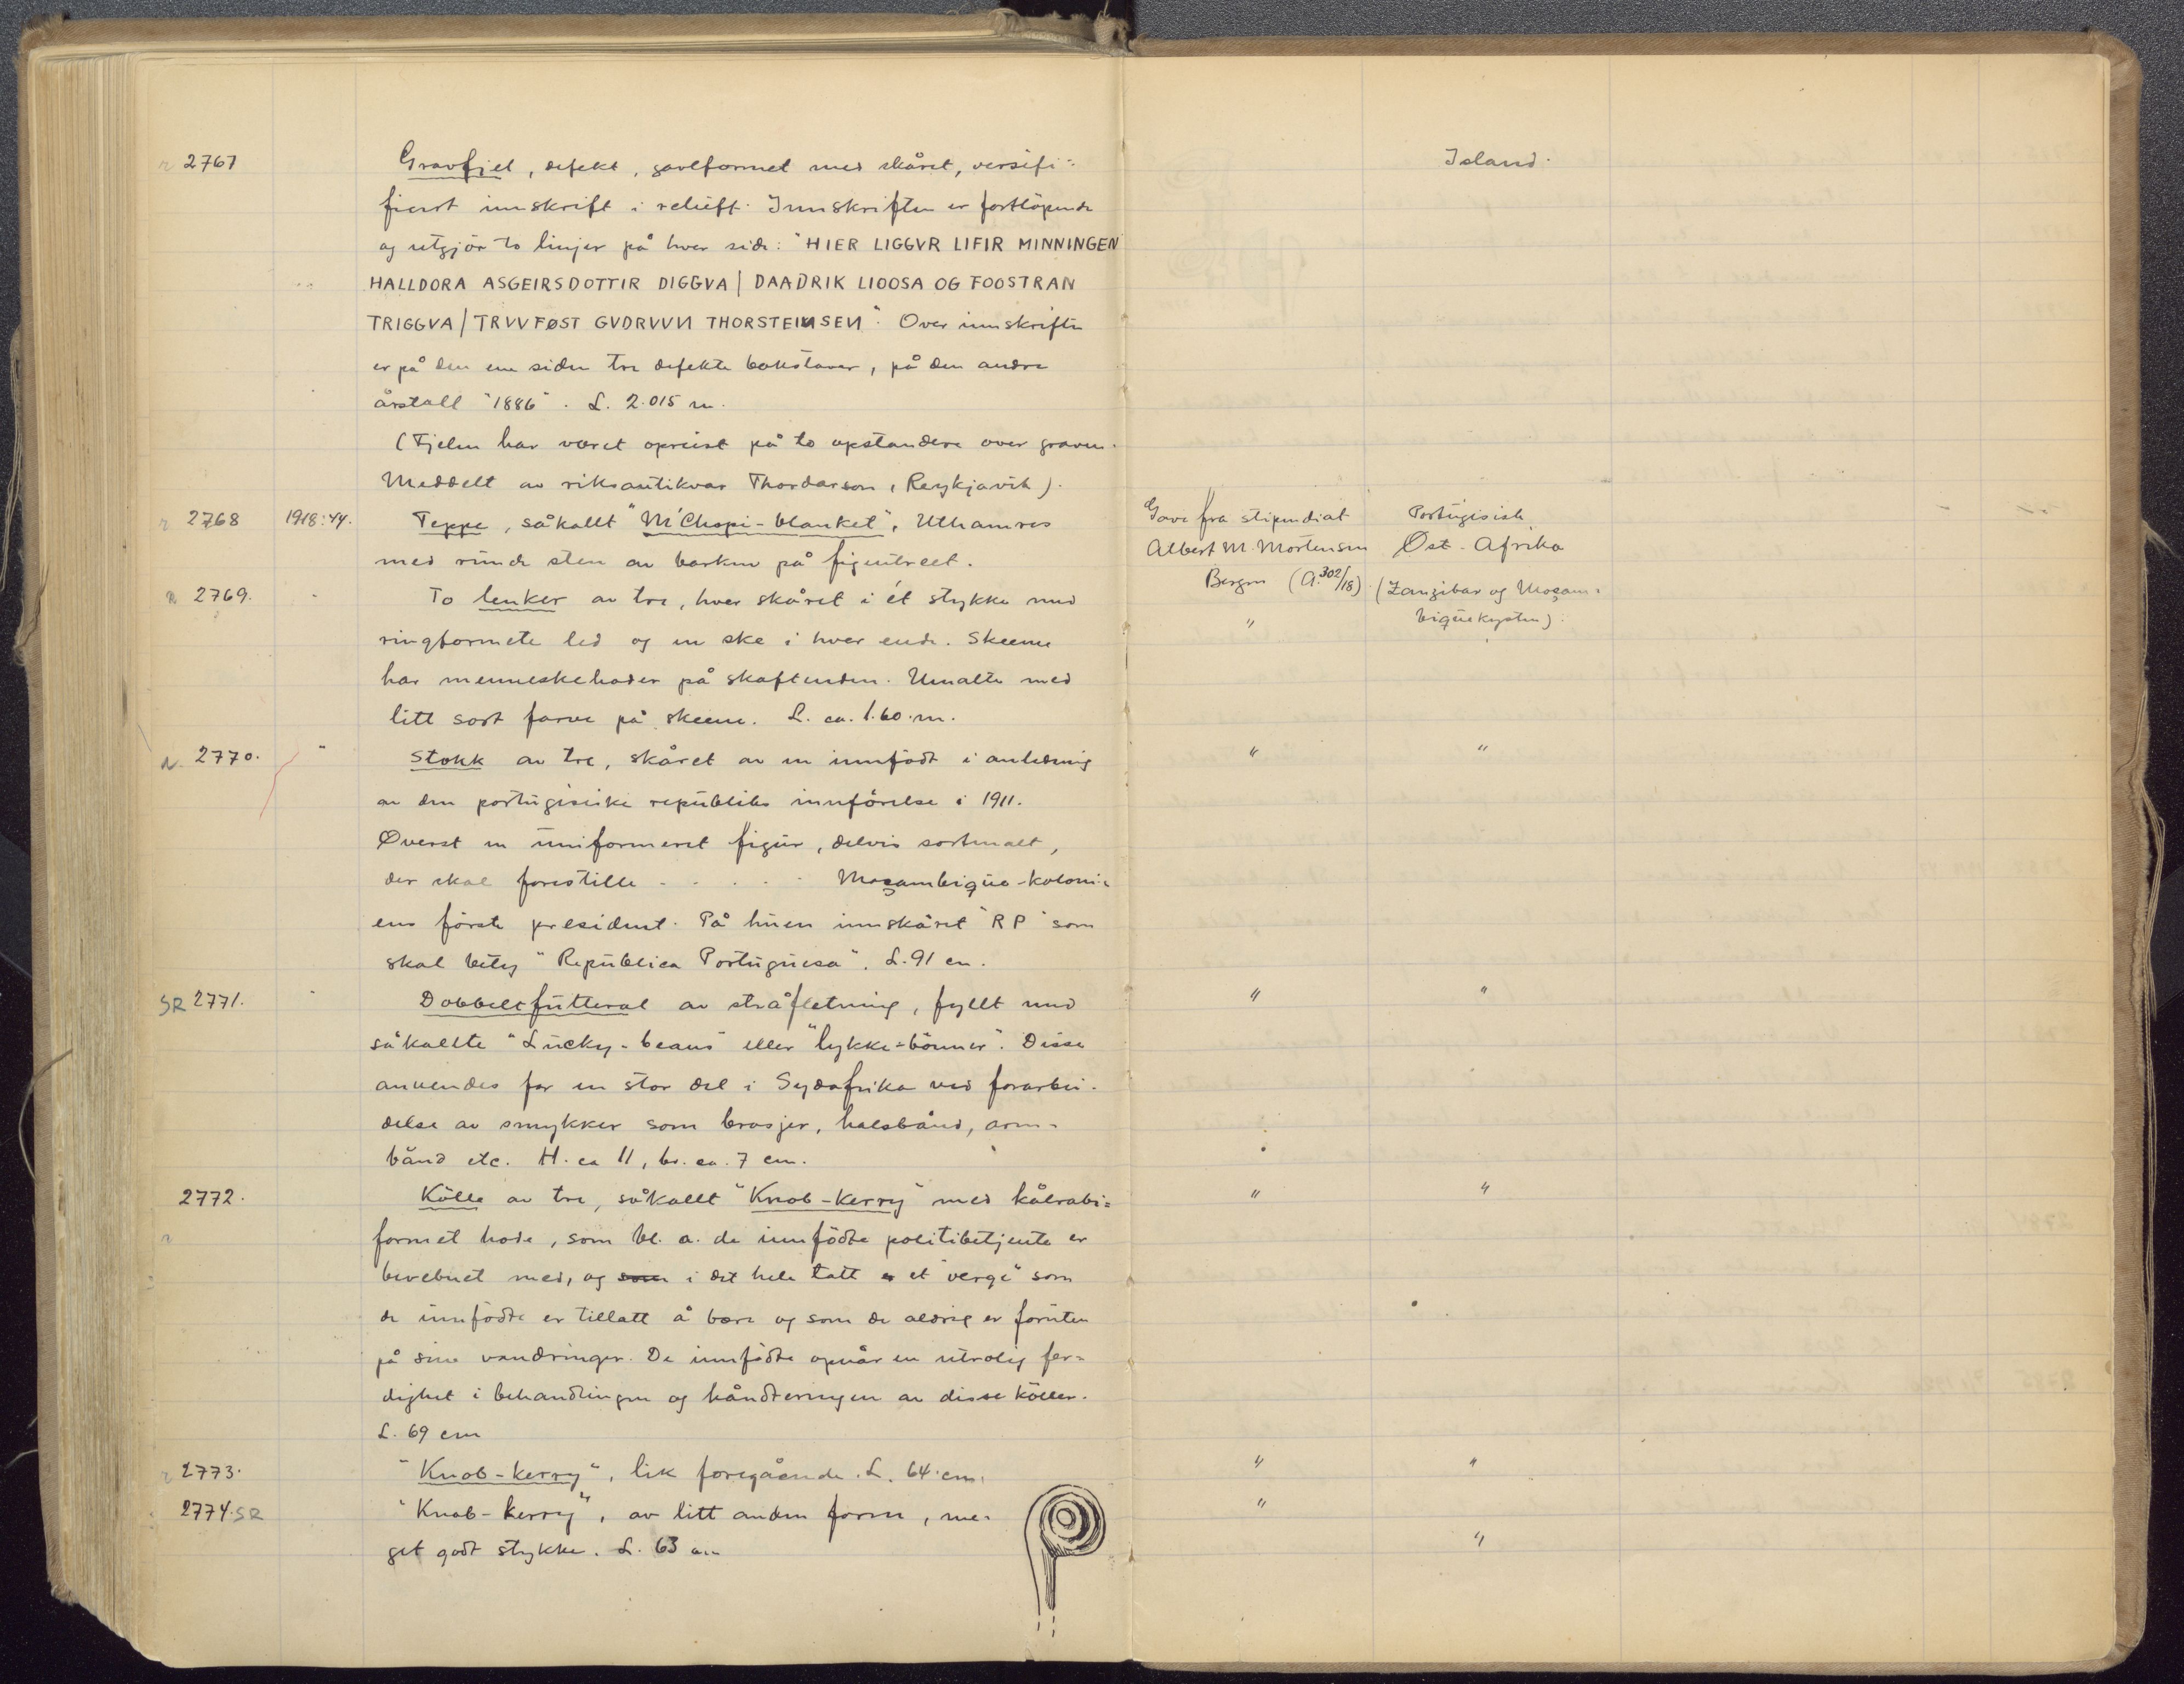 r 2767 Gravfjel, defekt, gavlformet med skåret, versifi=
fiert innskrift i relieff. Innskriften er fortlöpende
og utgjör to linjer på hver side: "HIER LIGGVR LIFIR MINNINGEN
HALLDORA ASGEIRSDOTTIR DIGGVA | DAADRIK LIOOSA OG FOOSTRAN
TRIGGVA | TRVVFØST GVDRVVN THORSTEINSEN". Over innskriften
er på den ene siden tre defekte bokstaver, på den andre
årstall "1886". L. 2.015 m.
(Fjelen har været opreist på to opstandere over graven.
Meddelt av riksantikvar Thordarson, Reykjavik).
r 2768 1918:44. Teppe, såkallt "M'Chopi-blanket", Uthamres
med runde sten av barken på figentreet.
r 2769. " To lenker av tre, hver skåret i ét stykke med
ringformete led og en ske i hver ende. Skeene
har menneskehoder på skaftenden. Umalte med
litt sort farve på skeene. L. ca. 1.60 m.
r 2770. " Stokk av tre, skåret av en innfödt i anledning
av den portugisiske republiks innförelse i 1911.
Øverst en uniformeret figur, delvis sortmalt,
der skal forestille . . . . . Moçambique-koloni=
ens förste president. På huen innskåret "RP" som
skal bety "Republica Portuguesa". L. 91 cm.
SR 2771. " Dobbeltfutteral av stråfletning, fyllt med
såkallte "Lucky-beans" eller "lykke-bönner". Disse
anvendes for en stor del i Sydafrika ved forarbei-
delse av smykker som brosjer, halsbånd, arm=
bånd etc. H. ca 11, br. ca. 7 cm.
2772. Kölle av tre, såkallt "Knob-Kerry" med kålrabi=
r formet hode, som bl. a. de innfödte politibetjente er
bevebnet med, og som i det hele tatt er et "verge" som
de innfödte er tillatt å bære og som de aldrig er foruten
på sine vandringer. De innfödte opnår en utrolig fer=
dighet i behandlingen og håndteringen av disse köller.
L. 69 cm
r 2773. "Knob-kerry", lik foregående. L. 64 cm.
2774. SR "Knob-kerry", av litt anden form, me=
get godt stykke. L. 63 cm
Island.
Gave fra stipendiat Portugisisk
Albert M. Mortensen Öst-Afrika
Bergen (A. 302/18) (Zanzibar og Moçam=
" biquekysten).
" "
" "
" "
" "
"
"